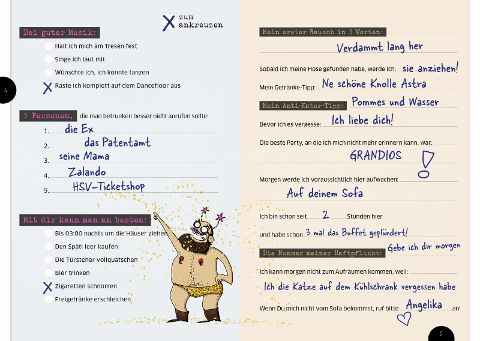 zum
ankreuzen
Bei guter Musik:
Halt ich mich am Tresen fest
Singe ich laut mit
Wünschte ich, ich könnte tanzen
Raste ich komplett auf dem Dancefloor aus
5 Personen, die man betrunken besser nicht anrufen sollte:
1. die Ex
2. das Patentamt
3. seine Mama
4. Zalando
5. HSV-Ticketshop
Mit dir kann man am besten:
Bis 03:00 nachts um die Häuser ziehen
Den Späti leer kaufen
Die Türsteher vollquatschen
Bier trinken
Zigaretten schnorren
Freigetränke erschleichen
4
Mein erster Rausch in 3 Worten:
Verdammt lang her
Sobald ich meine Hose gefunden habe, werde ich: sie anziehen!
Mein Getränke-Tipp: Ne schöne Knolle Astra
Mein Anti-Kater-Tipp: Pommes und Wasser
Bevor ich es vergesse: Ich liebe dich!
Die beste Party, an die ich mich nicht mehr erinnern kann, war:
GRANDIOS !
Morgen werde ich voraussichtlich hier aufwachen:
Auf deinem Sofa
Ich bin schon seit 2 Stunden hier
und habe schon 3 mal das Buffet geplündert!
Die Nummer meiner Haftpflicht: Gebe ich dir morgen
Ich kann morgen nicht zum Aufräumen kommen, weil
Ich die Katze auf dem Kühlschrank vergessen habe
Wenn Du mich nicht vom Sofa bekommst, ruf bitte Angelika an!
5